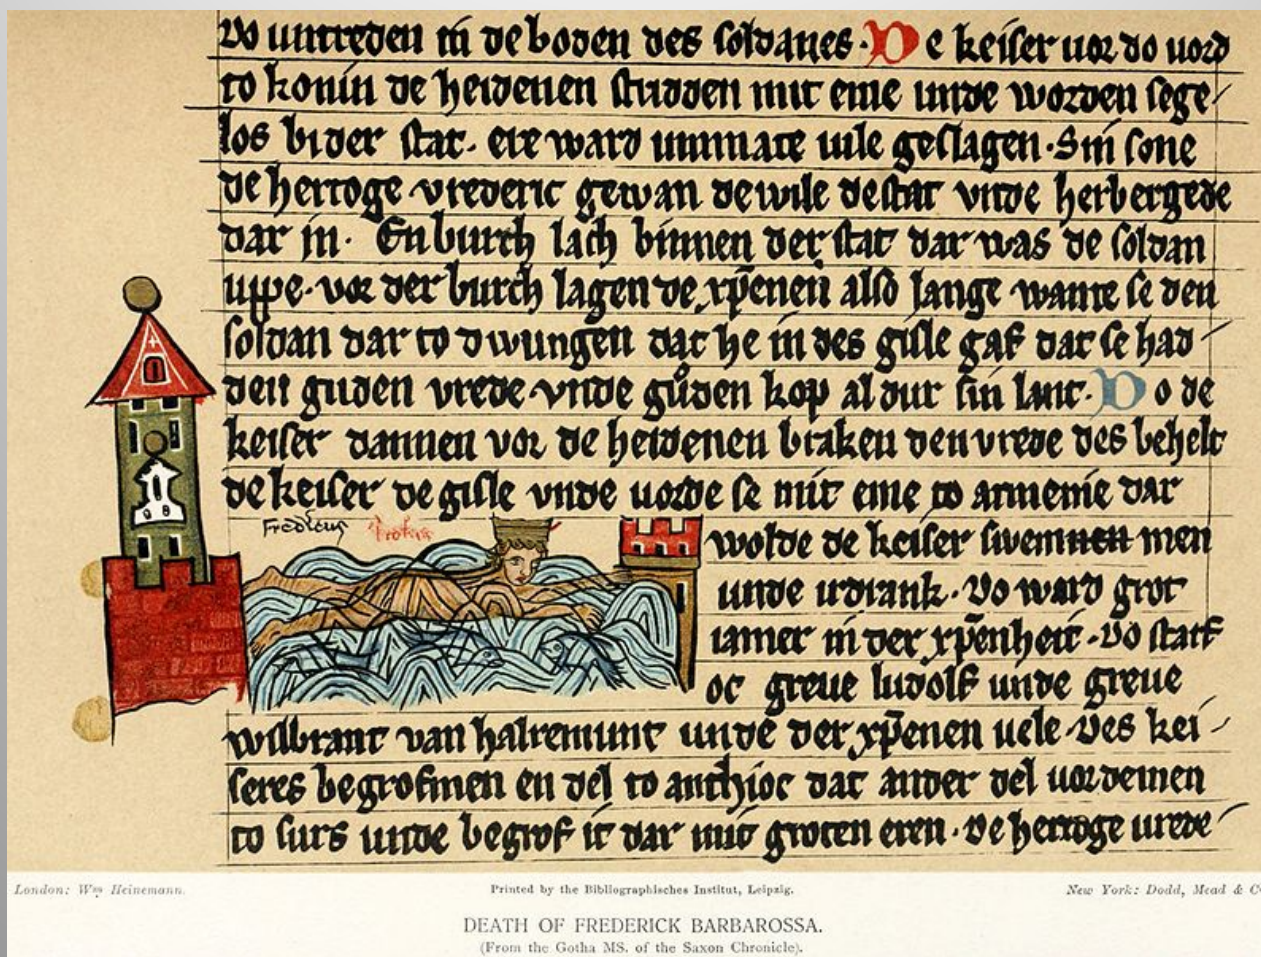 Do untreden in de boden des soldanes. De keiser uor do uord
to konin de heidenen studden mit eme unde worden sege
los bi der stat. ere ward unmate uile geslagen. Sin sone
de hertoge vrederic gewan de wile de stat vnde herbergede
dar in. En burch lach binnen der stat dar was de soldan
uppe. vor der burch lagen de xp̄enen also lange wante se den
soldan dar to dwungen dat he in des gisle gaf dat se had
den guden vrede vnde gůden kop al dur sin lant. Do de
keiser dannen vor de heidenen braken den vrede des behelt
de keiser de gisle vnde uorde se mit eme to armenie dar
Fredicus
wolde de keiser swemmen men
unde irdrank. Do ward grot
iamer in der xp̄enheit. Do starf
oc greue ludolf unde greue
wilbrant van halremunt unde der xp̄enen uele. Des kei
seres begrofmen en del to anthioc dat ander del uordemen
to surs unde begrof it dar mit groten eren. De hertoge urede
London: Wm Heinemann. Printed by the Bibliographisches Institut, Leipzig. New York: Dodd, Mead & C
DEATH OF FREDERICK BARBAROSSA.
(From the Gotha MS. of the Saxon Chronicle).